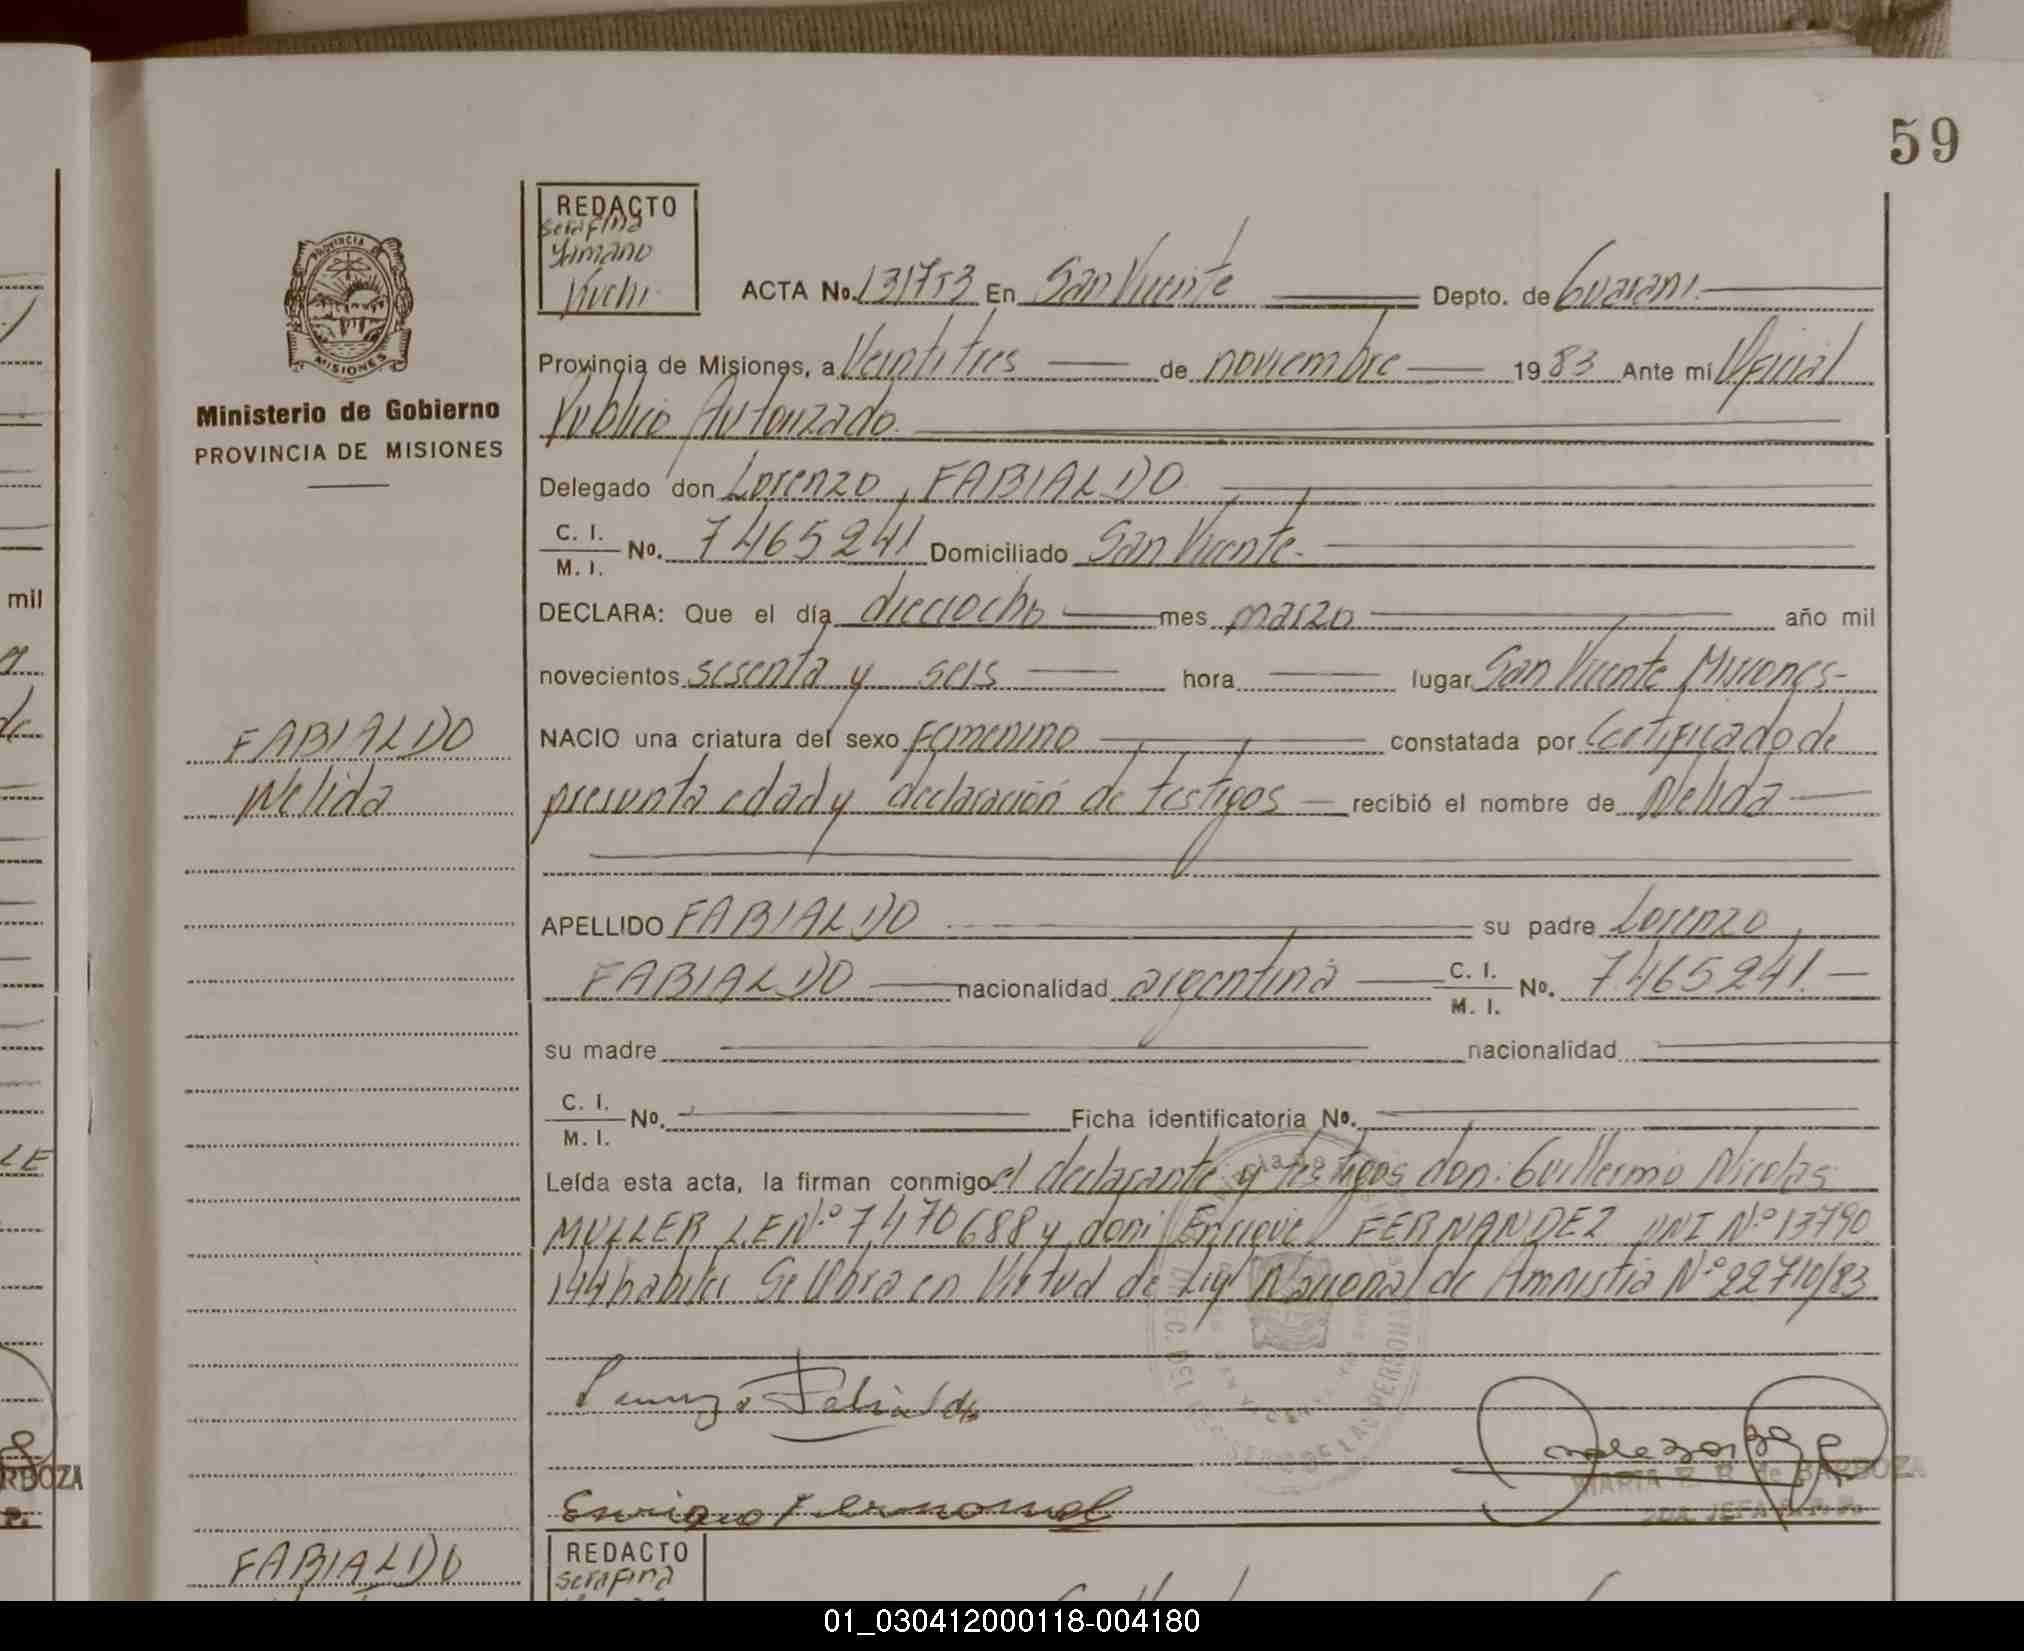 59
REDACTO
Serafina
Kuchi
ACTA No. 131753 En San Vicente Depto. de Guarani
Provincia de Misiones, a Veintitres de noviembre 1983 Ante mí Oficial
Publico Autorizado.
Delegado don Lorenzo, FABIALDO
C. I.
M. I. No. 7465241 Domiciliado San Vicente.
DECLARA: Que el día dieciocho mes marzo año mil
novecientos sesenta y seis hora lugar San Vicente Misiones-
NACIO una criatura del sexo femenino constatada por Certificado de
presunta edad y declaración de testigos recibió el nombre de Nelida
APELLIDO FABIALDO su padre Lorenzo,
FABIALDO nacionalidad argentina C. I. M. I. No. 7.465241.
su madre nacionalidad
C. I.
M. I. No. Ficha identificatoria No.
Leída esta acta, la firman conmigo el declarante y testigos don: Guillermo Nicolas
MULLER L.E Nº 7.470688 y don: Enrique FERNANDEZ DNI Nº 13790
144 habiles Se labra en Virtud de Ley Nacional de Amnistia Nº 22710/83
Enrique Fernandez
MARIA E. B. de BARDOZA
2DA. JEFA R. P. P.
PROVINCIA
MISIONES
Ministerio de Gobierno
PROVINCIA DE MISIONES
FABIALDO
Nelida
FABIALDO
REDACTO
Serafina
mil
RDOZA
P.
01_030412000118-004180